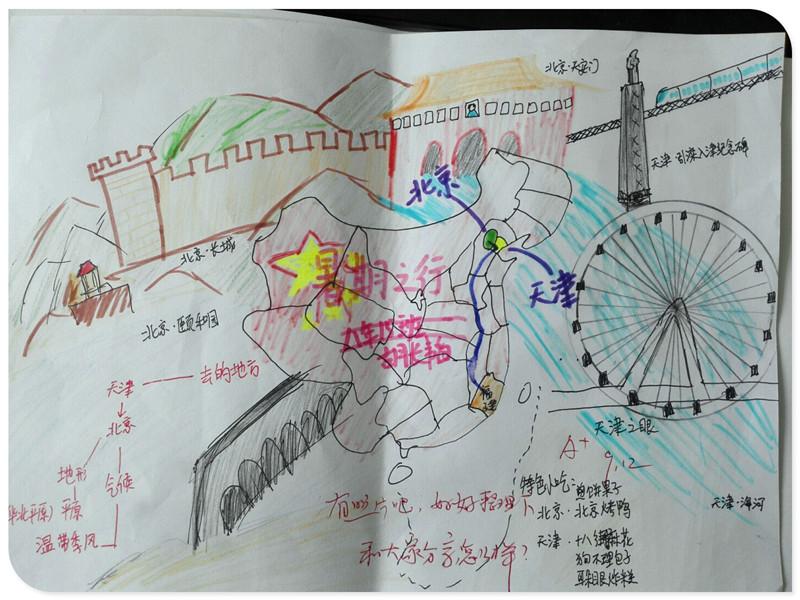 北京·天安门
天津 引滦入津纪念碑
北京
北京·长城
天津
暑期之行
北京·颐和园
福建
天津之眼
天津 —— 去的地方
北京
地形
气候
华北平原) 平原
温带季风
A+
9.12
天津·海河
特色小吃:
煎饼果子
北京·北京烤鸭
天津·十八街麻花
狗不理包子
耳朵眼炸糕
有照片吧,好好整理下
和大家分享怎么样?